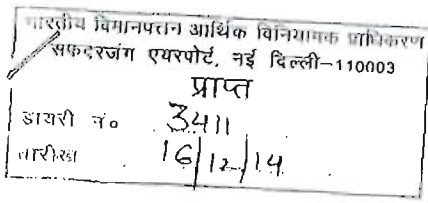 भारतीय विमानपत्तन आर्थिक विनियामक प्राधिकरण
सफदरजंग एयरपोर्ट, नई दिल्ली-110003
प्राप्त
डायरी नं० 3411
तारीख 16/12/14